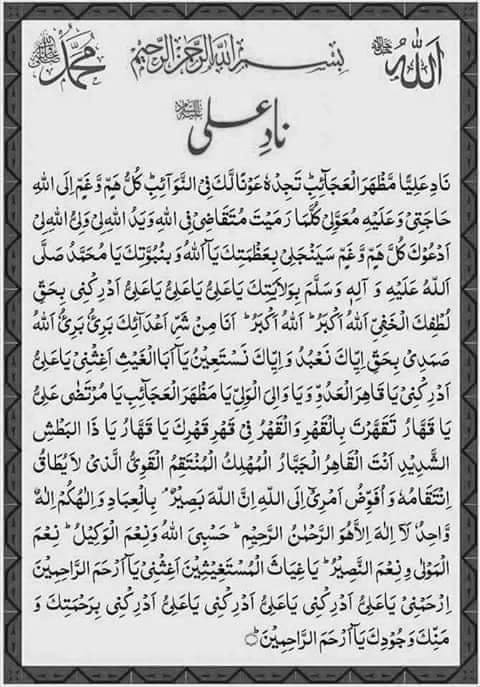 اللهُ جل جلاله بِسْمِ اللهِ الرَّحْمٰنِ الرَّحِيْمِ مُحَمَّدٌ ﷺ
نادِ علی علیہ السلام
نَادِ عَلِيًّا مَّظْهَرَ الْعَجَآئِبِ تَجِدْهُ عَوْنًا لَّكَ فِی النَّوَآئِبِ كُلُّ هَمٍّ وَّغَمٍّ اِلَی اللهِ
حَاجَتِیْ وَعَلَيْهِ مُعَوَّلِیْ كُلَّمَا رَمَيْتَ مُتَقَاضِیْ فِی اللهِ وَيَدُ اللهِ لِیْ وَلِیُّ اللهِ لِیْ
اَدْعُوْكَ كُلَّ هَمٍّ وَّغَمٍّ سَيَنْجَلِیْ بِعَظْمَتِكَ يَآ اَللهُ وَ بِنُبُوَّتِكَ يَا مُحَمَّدُ صَلَّی
اللهُ عَلَيْهِ وَ آلِهٖ وَسَلَّمَ بِوَلَايَتِكَ يَاعَلِیُّ يَاعَلِیُّ يَاعَلِیُّ اَدْرِكْنِیْ بِحَقِّ
لُطْفِكَ الْخَفِیِّ اَللهُ اَكْبَرُ ؕ اَللهُ اَكْبَرُ ؕ اَنَا مِنْ شَرِّ اَعْدَآئِكَ بَرِیْءٌ بَرِیْءٌ اَللهُ
صَمَدِیْ بِحَقِّ اِيَّاكَ نَعْبُدُ وَ اِيَّاكَ نَسْتَعِيْنُ يَآ اَبَا الْغَيْثِ اَغِثْنِیْ يَاعَلِیُّ
اَدْرِكْنِیْ يَا قَاهِرَ الْعَدُوِّ وَ يَا وَالِیَ الْوَلِیِّ يَا مَظْهَرَ الْعَجَآئِبِ يَا مُرْتَضٰی عَلِیُّ
يَا قَهَّارُ تَقَهَّرْتَ بِالْقَهْرِ وَالْقَهْرُ فِیْ قَهْرِ قَهْرِكَ يَا قَهَّارُ يَا ذَا الْبَطْشِ
الشَّدِيْدِ اَنْتَ الْقَاهِرُ الْجَبَّارُ الْمُهْلِكُ الْمُنْتَقِمُ الْقَوِیُّ الَّذِیْ لَا يُطَاقُ
اِنْتِقَامُهٗ وَ اُفَوِّضُ اَمْرِیْ اِلَی اللهِ اِنَّ اللهَ بَصِيْرٌۢ بِالْعِبَادِ وَ اِلٰهُكُمْ اِلٰهٌ
وَّاحِدٌ لَآ اِلٰهَ اِلَّا هُوَ الرَّحْمٰنُ الرَّحِيْمُ ؕ حَسْبِیَ اللهُ وَنِعْمَ الْوَكِيْلُ ؕ نِعْمَ
الْمَوْلٰی وَ نِعْمَ النَّصِيْرُ ؕ يَا غِيَاثَ الْمُسْتَغِيْثِيْنَ اَغِثْنِیْ يَآ اَرْحَمَ الرَّاحِمِيْنَ
اِرْحَمْنِیْ يَاعَلِیُّ اَدْرِكْنِیْ يَاعَلِیُّ اَدْرِكْنِیْ يَاعَلِیُّ اَدْرِكْنِیْ بِرَحْمَتِكَ وَ
مَنِّكَ وَجُوْدِكَ يَآ اَرْحَمَ الرَّاحِمِيْنَ